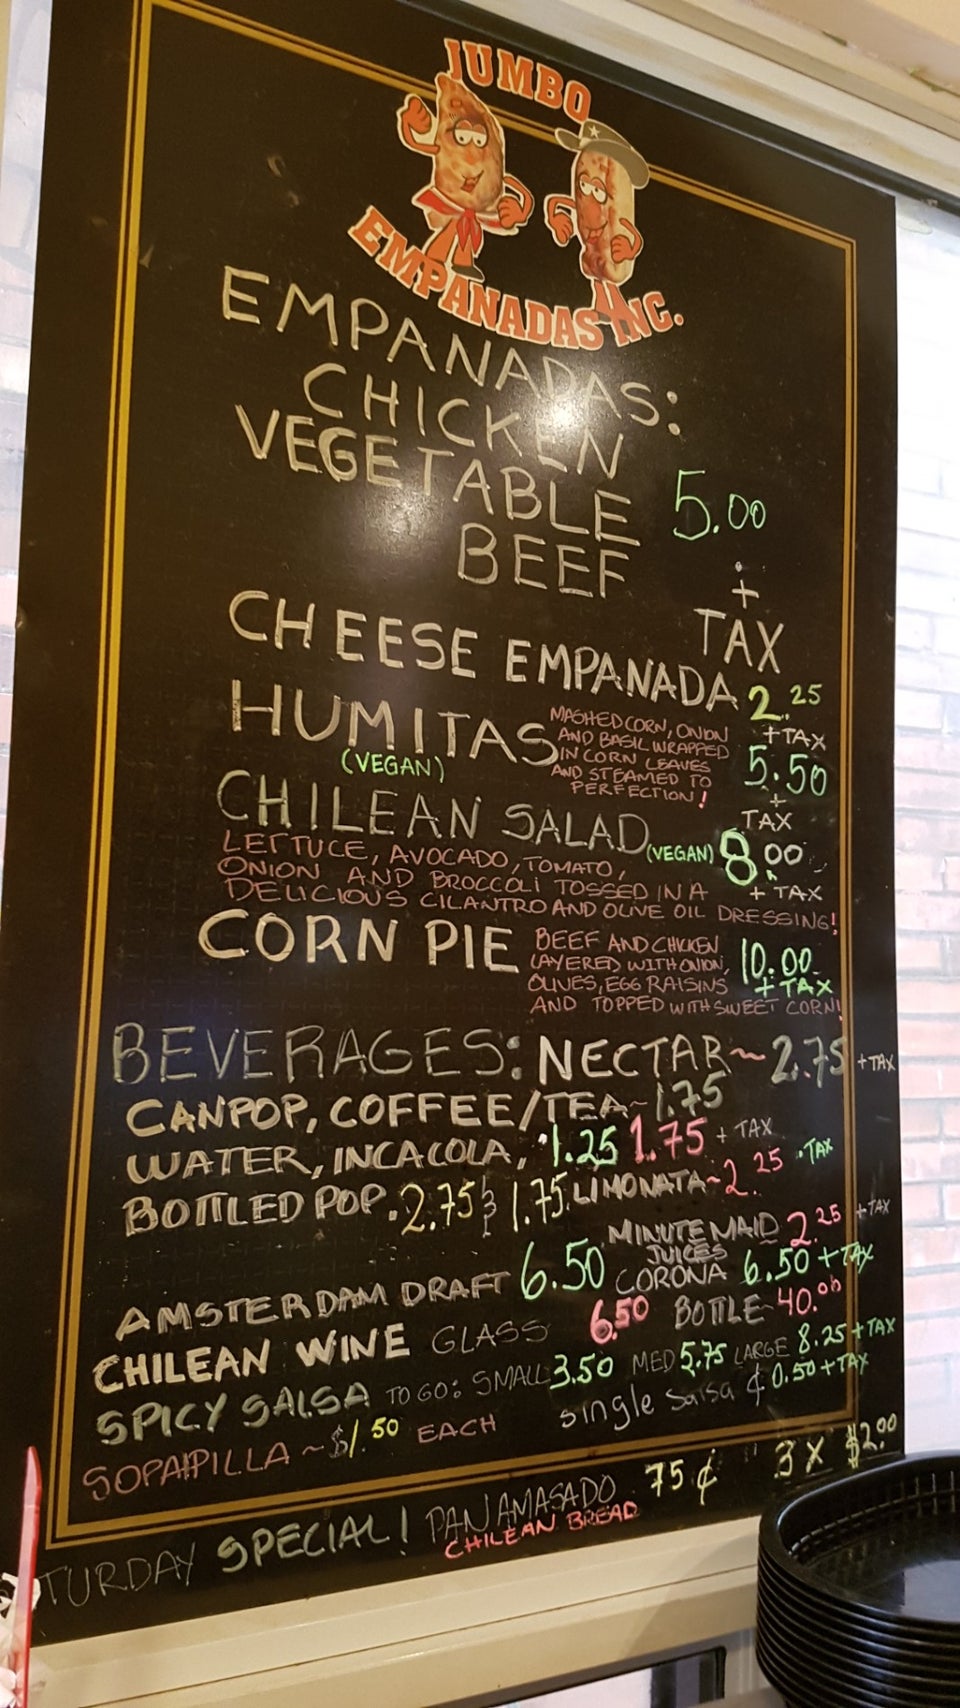 JUMBO
EMPANADAS INC.
EMPANADAS:
CHICKEN
VEGETABLE 5.00
BEEF +
TAX
CHEESE EMPANADA 2.25
+TAX
HUMITAS MASHED CORN, ONION
AND BASIL WRAPPED 5.50
(VEGAN) IN CORN LEAVES +
AND STEAMED TO TAX
PERFECTION!
CHILEAN SALAD (VEGAN) 8.00
+ TAX
LETTUCE, AVOCADO, TOMATO,
ONION AND BROCCOLI TOSSED IN A
DELICIOUS CILANTRO AND OLIVE OIL DRESSING!
CORN PIE BEEF AND CHICKEN 10.00
LAYERED WITH ONION, + TAX
OLIVES, EGG RAISINS
AND TOPPED WITH SWEET CORN!
BEVERAGES: NECTAR~ 2.75 +TAX
CANPOP, COFFEE/TEA~ 1.75
WATER, INCACOLA, 1.25 1.75 + TAX
BOTTLED POP. 2.75 & 1.75 LIMONATA~ 2.25 +TAX
MINUTE MAID 2.25 +TAX
JUICES
AMSTERDAM DRAFT 6.50 CORONA 6.50 + TAX
CHILEAN WINE GLASS 6.50 BOTTLE~ 40.00
SPICY SALSA TO GO: SMALL 3.50 MED 5.75 LARGE 8.25 + TAX
single Salsa ¢ 0.50 + TAX
SOPAIPILLA ~ $1.50 EACH
TURDAY SPECIAL! PAN AMASADO 75¢ 3 X $2.00
CHILEAN BREAD